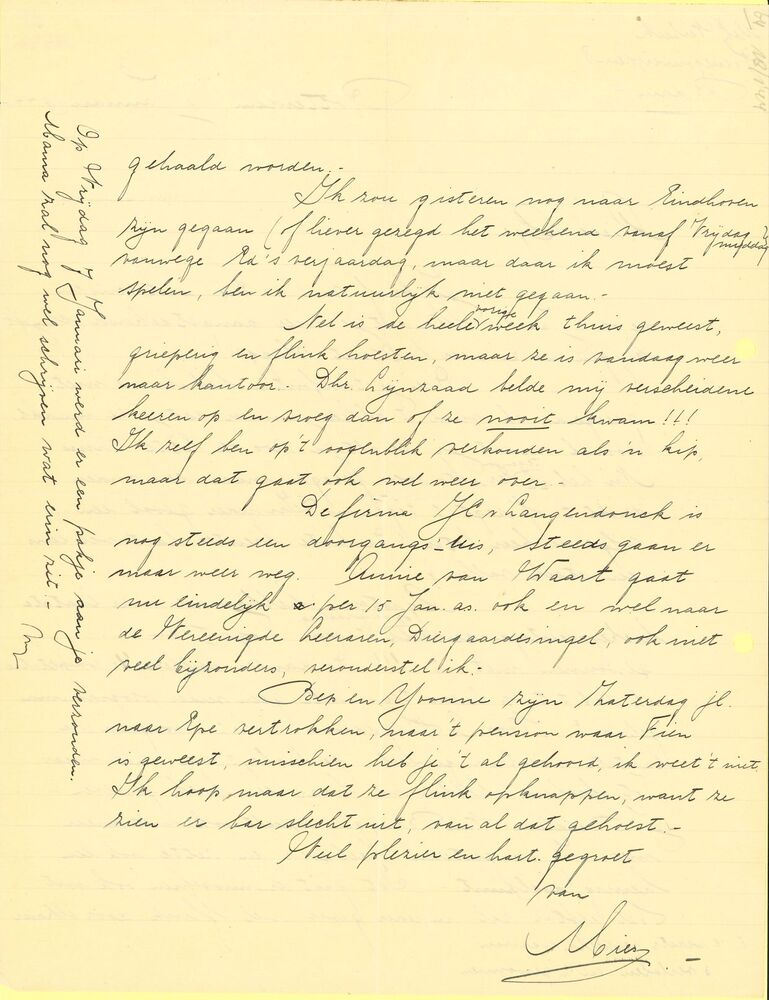 gehaald worden.-
Ik zou gisteren nog naar Eindhoven
zijn gegaan (of liever gezegd het weekend vanaf Vrijdag
middag
vanwege Ed's verjaardag, maar daar ik moest
spelen, ben ik natuurlijk niet gegaan.-
Nel is de heele vorige week thuis geweest,
grieperig en flink hoesten, maar ze is vandaag weer
naar kantoor. Dhr. Lijnzaad belde mij verscheidene
keeren op en vroeg dan of ze nooit kwam!!!
Ik zelf ben op 't oogenblik verkouden als 'n kip,
maar dat gaat ook wel weer over.-
De firma JC v Langendonck is
nog steeds een doorgangs-huis, steeds gaan er
maar weer weg. Annie van Waart gaat
nu eindelijk per 15 Jan. as. ook en wel naar
de Vereenigde Leeraren, Diergaardesingel, ook niet
veel bijzonders, veronderstel ik.-
Bep en Yvonne zijn Zaterdag jl.
naar Epe vertrokken, naar 't pension waar Fien
is geweest, misschien heb je 't al gehoord, ik weet 't niet.
Ik hoop maar dat ze flink opknappen, want ze
zien er bar slecht uit, van al dat gehoest.-
Veel plezier en hart. gegroet
van
Mies.-
Op Vrijdag 7 Januari werd er een pakje aan je verzonden.
Mama zal nog wel schrijven wat erin zit.-